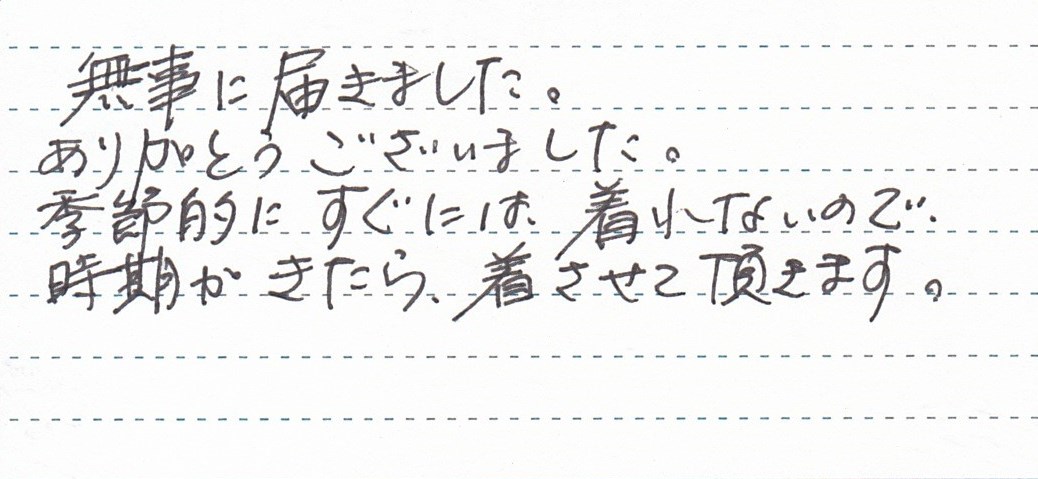 無事に届きました。
ありがとうございました。
季節的にすぐには、着れないので、
時期がきたら、着させて頂きます。